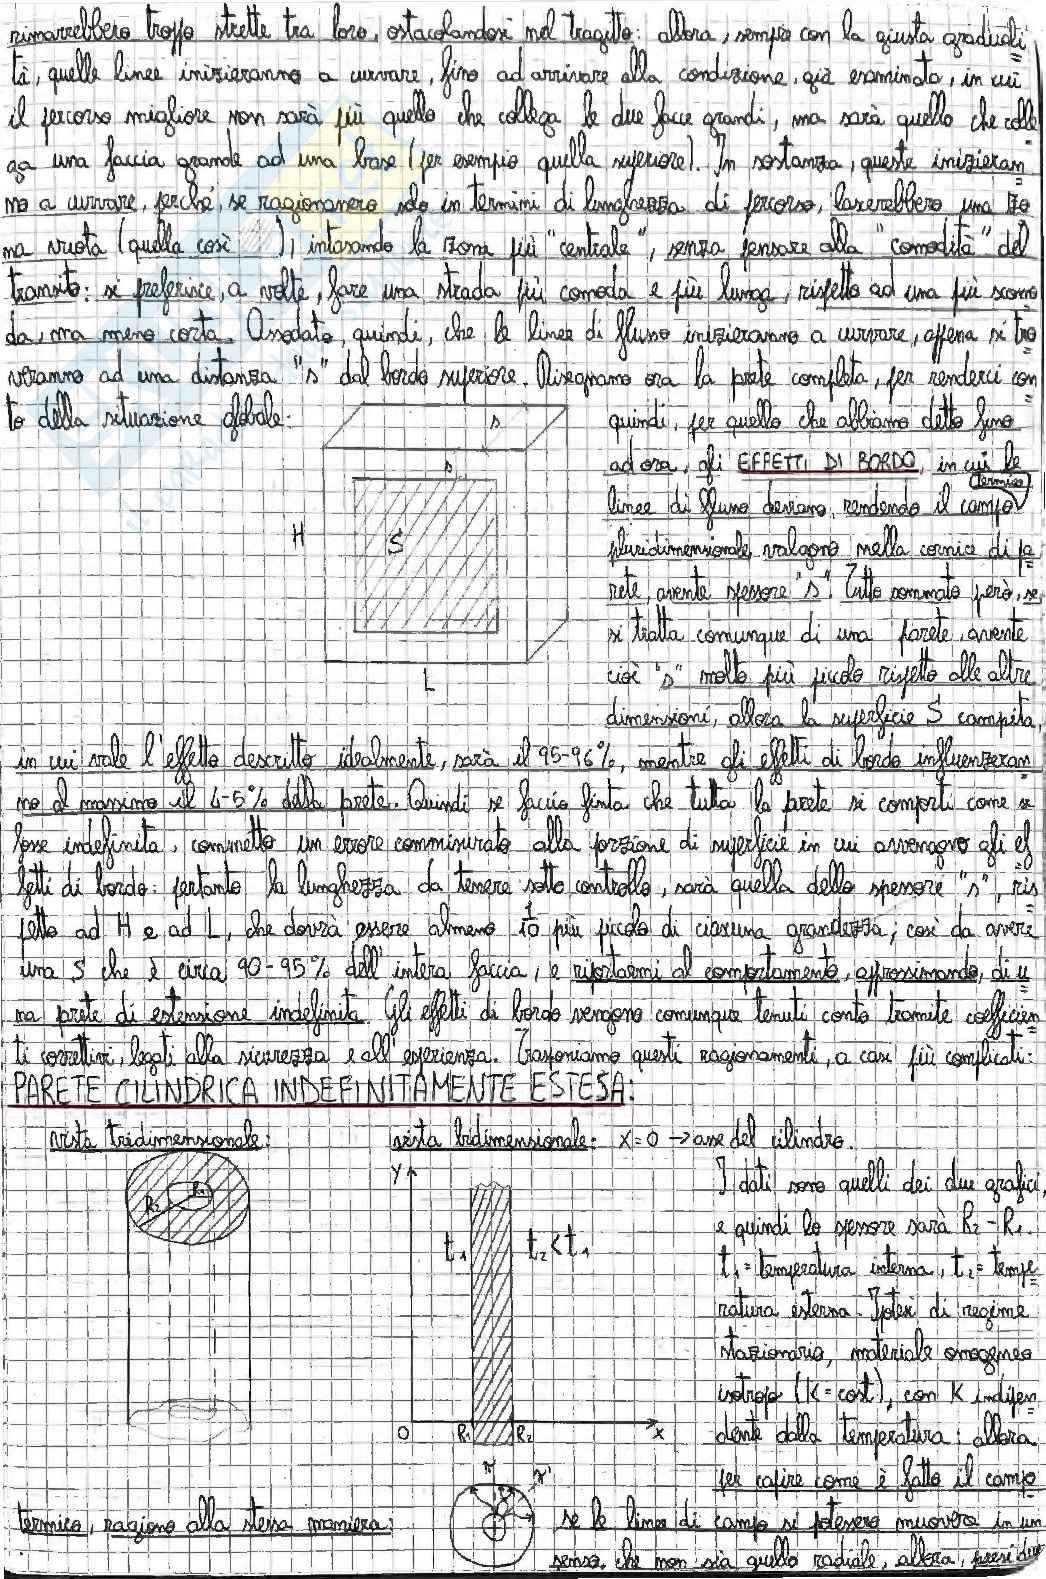 rimarrebbero troppo strette tra loro, ostacolandosi nel tragitto: allora, sempre con la giusta graduali
tà, quelle linee inizieranno a curvare, fino ad arrivare alla condizione, già esaminata, in cui
il percorso migliore non sarà più quello che collega le due facce grandi, ma sarà quello che colle
ga una faccia grande ad una base (per esempio quella superiore). In sostanza, queste inizieran
no a curvare, perché, se ragionassero solo in termini di lunghezza di percorso, lascerebbero una zo
na vuota (quella così ), intasando la zona più "centrale", senza pensare alla "comodità" del
transito: si preferisce, a volte, fare una strada più comoda e più lunga, rispetto ad una più scomo
da, ma meno corta. Assodato, quindi, che le linee di flusso inizieranno a curvare, appena si tro
veranno ad una distanza "s" dal bordo superiore. Disegnamo ora la parete completa, per renderci con
to della situazione globale:
quindi, per quello che abbiamo detto fino
ad ora, gli EFFETTI DI BORDO, in cui le
linee di flusso deviano, rendendo il campo termico
pluridimensionale, valgono nella cornice di pa
rete, avente spessore "s". Tutto sommato però, se
si tratta comunque di una parete, avente
cioè "s" molto più piccolo rispetto alle altre
dimensioni, allora la superficie S campita,
s
s
H
S
L
in cui vale l'effetto descritto idealmente, sarà il 95-96%, mentre gli effetti di bordo influenzeran
no al massimo il 4-5% della parete. Quindi se faccio finta che tutta la parete si comporti come se
fosse indefinita, commetto un errore commisurato alla porzione di superficie in cui avvengono gli ef
fetti di bordo: pertanto la lunghezza da tenere sotto controllo, sarà quella dello spessore "s", ris
petto ad H e ad L, che dovrà essere almeno 1/10 più piccolo di ciascuna grandezza, così da avere
una S che è circa 90-95% dell'intera faccia, e riportarmi al comportamento, approssimando, di u
na parete di estensione indefinita. Gli effetti di bordo vengono comunque tenuti conto tramite coefficien
ti correttivi, legati alla sicurezza e all'esperienza. Trasponiamo questi ragionamenti, a casi più complicati:
PARETE CILINDRICA INDEFINITAMENTE ESTESA:
vista tridimensionale:
vista bidimensionale: X=0 → asse del cilindro.
R2
R1
Y
t1
t2<t1
O
R1
R2
X
I dati sono quelli dei due grafici,
e quindi lo spessore sarà R2-R1.
t1=temperatura interna, t2=tempe
ratura esterna. Ipotesi di regime
stazionario, materiale omogeneo
isotropo (K=cost), con K indipen
dente dalla temperatura: allora
per capire come è fatto il campo
termico, ragiono alla stessa maniera:
r
r'
se le linee di campo si potessero muovere in un
senso, che non sia quello radiale, allora, presi due